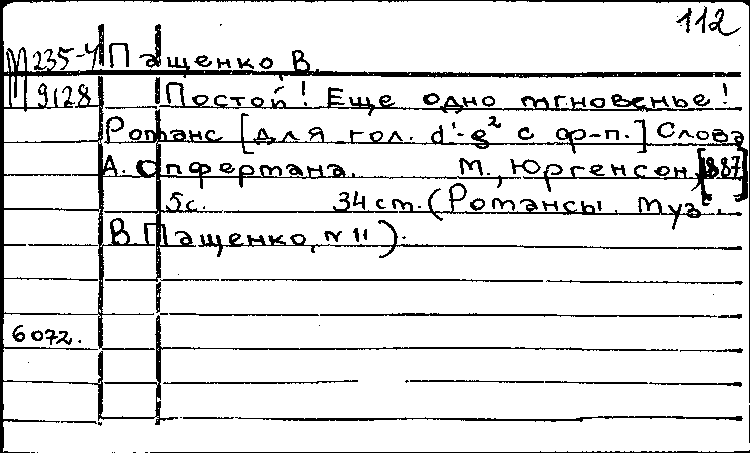 112
М 235-4 Пащенко, В.
9128 Постой! Еще одно мгновенье!
Романс [для гол. d'-g² с ф-п.] Слова
А. Опфермана. М., Юргенсон, [1887]
5с. 34 ст. (Романсы. Муз.
В. Пащенко, № 11).
6072.